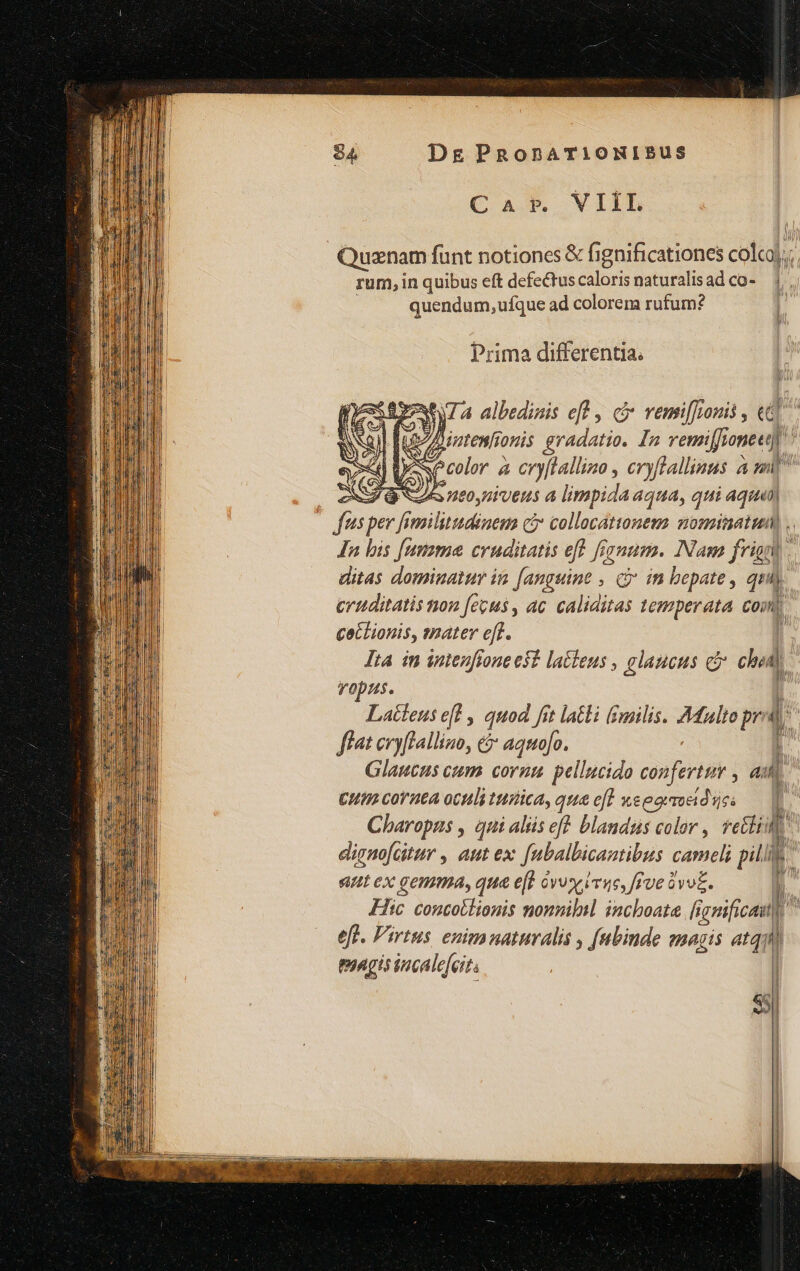 84 DE PROBATIONIBUS
CAP. VIII.
Quænam ſunt notiones & ſignificationes colo
rum, in quibus eſt defectus caloris naturalis ad co-
quendum, uſque ad colorem rufum?
Prima differentia.
TA albedinis eſt, & remiſſionis,
intenſionis gradatio. In remiſſione
color à cryſtallino, cryſtallinus à
neo, niveus a limpida aqua, qui
ſus per ſimilitudinem & collocationem nominatur
In his ſumma cruditatis eſt ſignum. Nam frigi
ditas dominatur in ſanguine, & in hepate,
cruditatis non ſecus, ac caliditas temperata con
coctionis, mater eſt.
Ita in intenſione eſt lacteus, glaucus & cha
ropus.
Lacteus eſt, quod ſit lacti ſimilis. Multo præ
ſtat cryſtallino, & aquoſo.
Glaucus cum cornu pellucido confertur,
cum cornea oculi tunica, quæ eſt κερατοειδής.
Charopus, qui aliis eſt blandus color,
dignoſcitur, aut ex ſubalbicantibus cameli
aut ex gemma, quæ eſt ὀνυχίτης, ſive ὄνυξ.
Hic concoctionis nonnihil inchoatæ
eſt. Virtus enim naturalis, ſubinde magis
magis incaleſcit.